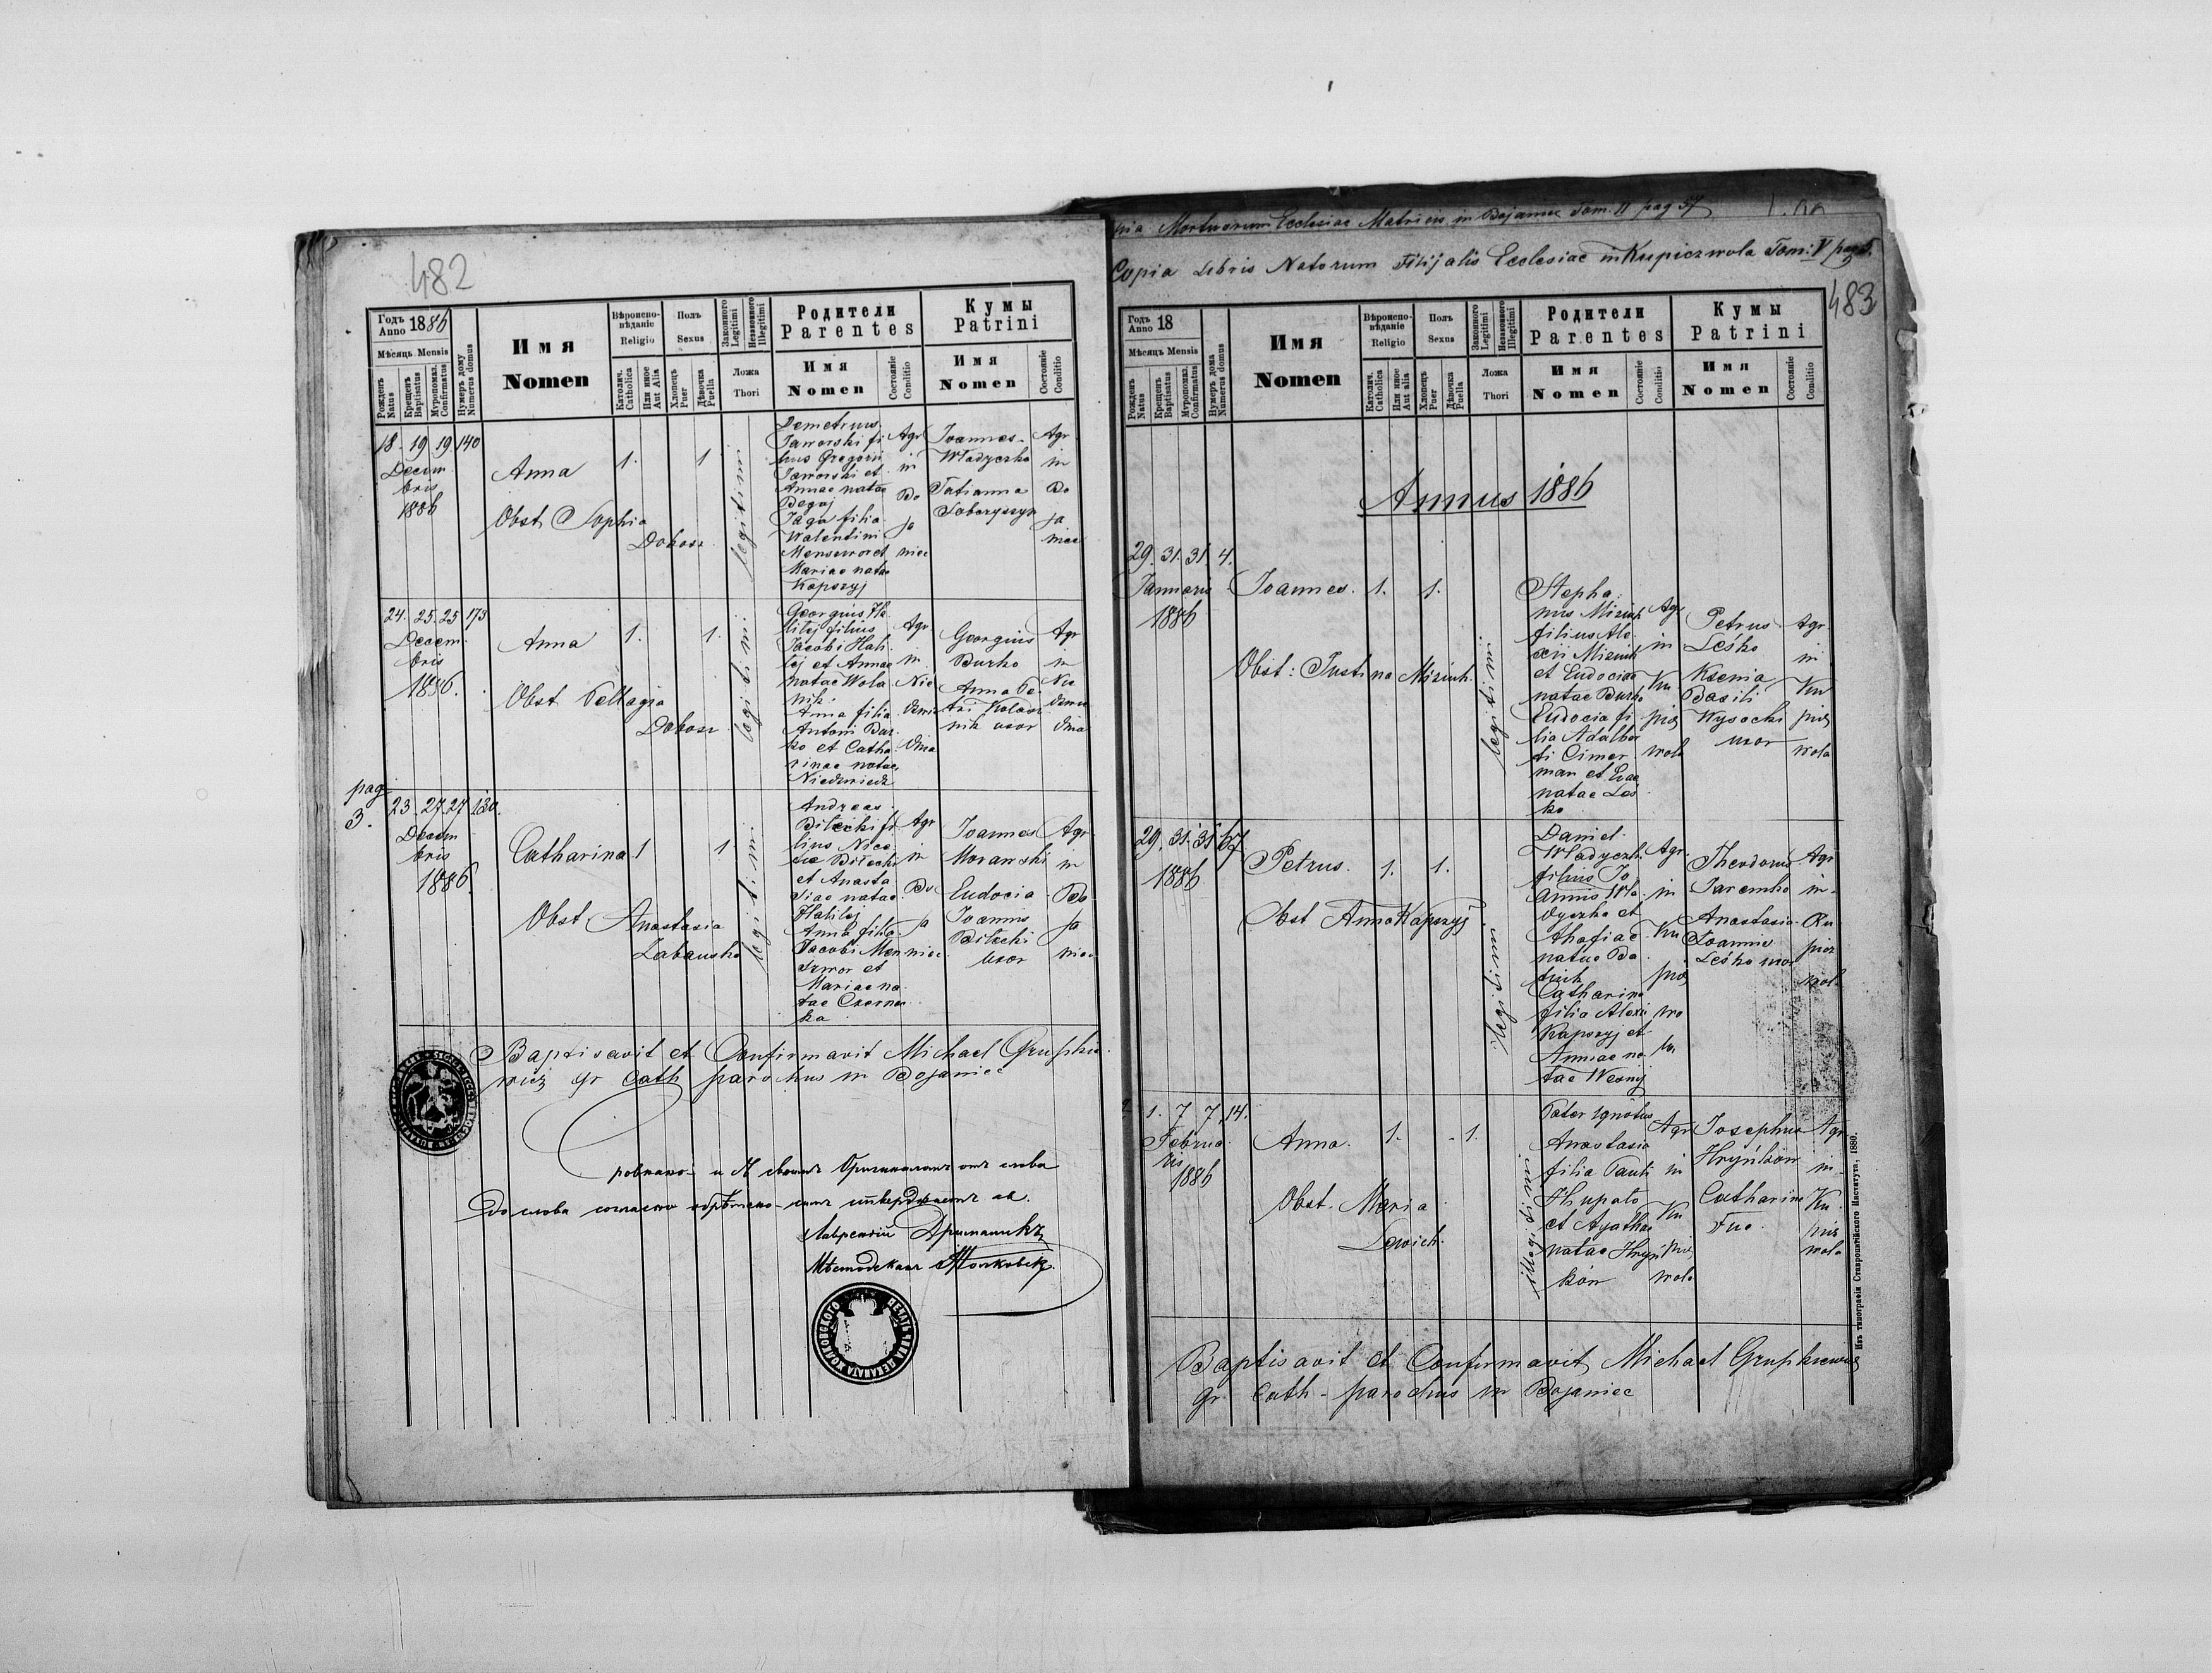 482
Годъ Anno 1886
Мѣсяцъ Mensis
Рожденъ Natus
Крещенъ Baptisatus
Муропомаз. Confirmatus
Нумеръ дому Numerus domus
Имя
Nomen
Вѣроиспо-
вѣданіе
Religio
Католич. Catholica
Или иное Aut Alia
Полъ
Sexus
Хлопецъ Puer
Дѣвочка Puella
Законного Legitimi
Незаконного Illegitimi
Ложа
Thori
Родители
Parentes
Имя
Nomen
Состояніе Conditio
Кумы
Patrini
Имя
Nomen
Состояніе Conditio
18. 19 19. 140
Decem
bris
1886
Anna
1.
1
Obst Sophia
Dobosz
legitimi
Demetrius
Jaworski fi
lius Gregorii
Jaworski et
Annae natae
Begaj
Jaga filia
Walentini
et
Mariae natae
Kapszyj
Agr
in
Bo
ja
niec
Joannes
Władyczko
Tatianna
Agr
in
Bo
ja
niec
24. 25. 25 173
Decem
bris
1886.
Anna
1.
1.
Obst Pellagia
Dobosz
legitimi
Georgius Ha
lilej filius
Jacobi Hali
lej et Annae
natae Wola
nik
Anna filia
Antoni Bur
ko et Catha
rinae natae
Niedzwiedz
Agr
in
Georgius
Burko
Anna Pe
tri
uxor
Agr
in
pag
3.
23. 27. 27 130.
Decem
bris
1886.
Catharina
1
1
Obst Anastasia
Zabawska
legitimi
Andreas
Bilecki fi
lius Nice
tae Bilecki
et Anasta
siae natae
Halilej
Anna filia
Jacobi Men
et
Mariae na
tae Czerne
ka
Agr
in
Bo
ja
niec
Joannes
Morawski
Eudocia
Joannis
Bilecki
uxor
Agr
in
Bo
ja
niec
Baptisavit et Confirmavit Michael Grupkie
wicz gr Cath parochus in Bojaniec
до слова согласно
Copia Mortuorum Ecclesiae Matricis in Bojaniec Tom. II pag 37
Copia Libris Natorum Filijalis Ecclesiae in Kupiczwola Tom: V pag 5.
483
Годъ Anno 18
Мѣсяцъ Mensis
Рожденъ Natus
Крещенъ Baptisatus
Муропомаз. Confirmatus
Нумеръ дома Numerus domus
Имя
Nomen
Вѣроиспо-
вѣданіе
Religio
Католич. Catholica
Или иное Aut alia
Полъ
Sexus
Хлопецъ Puer
Дѣвочка Puella
Законного Legitimi
Незаконного Illegitimi
Ложа
Thori
Родители
Parentes
Имя
Nomen
Состояніе Conditio
Кумы
Patrini
Имя
Nomen
Состояніе Conditio
Annus 1886
29. 31. 31. 4.
Januaris
1886
Joannes.
1.
1.
Obst: Justina Miziuk
legitimi
Stepha
nus Miziuk
filius Ale
xii Miziuk
et Eudociae
natae Burko
Eudocia fi
lia Adalber
ti Cimer
man et Evae
natae Les
ko
Agr
in
Ku
picz
wola
Petrus
Leśko
Ksenia
Basili
Wysocki
uxor
Agr
in
Ku
picz
wola
29. 31. 31 67
1886
Petrus.
1.
1.
Obst Anna Kapszyj
legitimi
Daniel
Władyczko
filius Jo
annis Wła
dyczko et
Ahafiae
natae
Catharina
filia Alexii
Kapszyj et
Annae na
tae Wesnij
Agr
in
Ku
picz
wo
la
Theodorus
Jaremko
Anastasia
Joannis
Leśko uxor
Agr
in
Ku
picz
wola
1. 7 7. 14.
Februa
ris
1886
Anna.
1.
1.
Obst. Maria
illegitimi
Pater ignotus
Anastasia
filia Pauli
Hupalo
et Agathae
natae Hryń
ków
Agr
in
Ku
picz
wola
Josephus
Hryńków
Catharina
Fuc.
Agr
in
Ku
picz
wola
Baptisavit et Confirmavit Michael Grupkiewicz
gr Cath - parochus in Bojaniec
Изъ типографіи Ставропигійского Института, 1880.